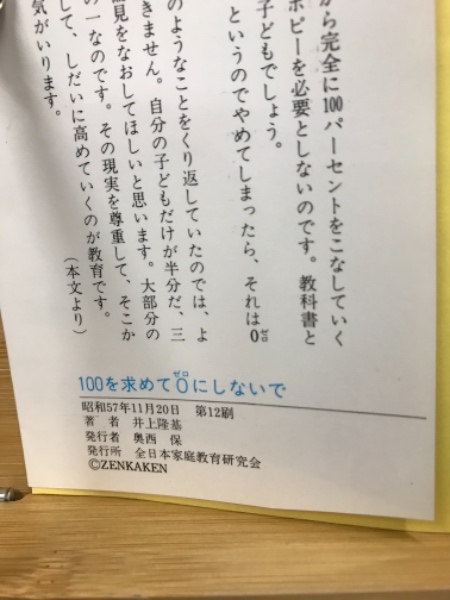 から完全に100パーセントをこなしていく
ポピーを必要としないのです。教科書と
子どもでしょう。
というのでやめてしまったら、それは0
ゼロ
のようなことをくり返していたのでは、よ
きません。自分の子どもだけが半分だ、三
見をなおしてほしいと思います。大部分の
の一なのです。その現実を尊重して、そこか
して、しだいに高めていくのが教育です。
気がいります。
(本文より)
100を求めて0にしないで
ゼロ
昭和57年11月20日 第12刷
著 者 井上隆基
発行者 奥西 保
発行所 全日本家庭教育研究会
©ZENKAKEN